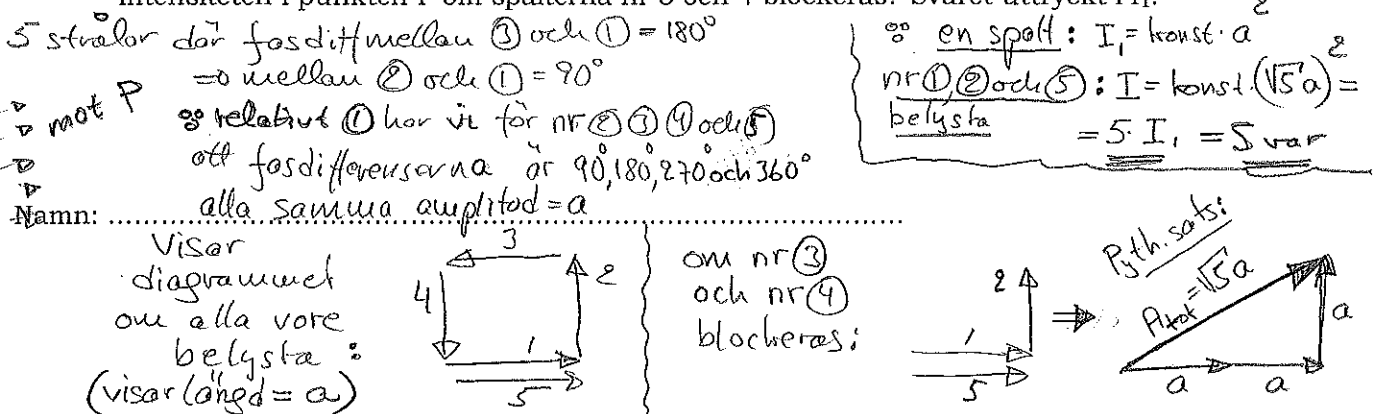 intensiteten i punkten P om spalterna nr 3 och 4 blockeras? Svaret uttryckt i I₁.
5 strålar där fasdiff mellan ③ och ① = 180°
⇒ mellan ② och ① = 90°
mot P
∴ relativt ① har vi för nr ② ③ ④ och ⑤
att fasdifferenserna är 90°, 180°, 270° och 360°
alla samma amplitud = a
∴ en spalt: I₁ = konst. a²
nr ①, ② och ⑤: I = konst. (√5 a)² =
belysta
= 5. I₁ = Svar
Namn:
Visar
diagrammet
om alla vore
belysta:
(visarlängd = a)
3
4
2
1
5
om nr ③
och nr ④
blockeras:
2
1
5
⇒
Pyth. sats:
Atot = √5 a
a
a a